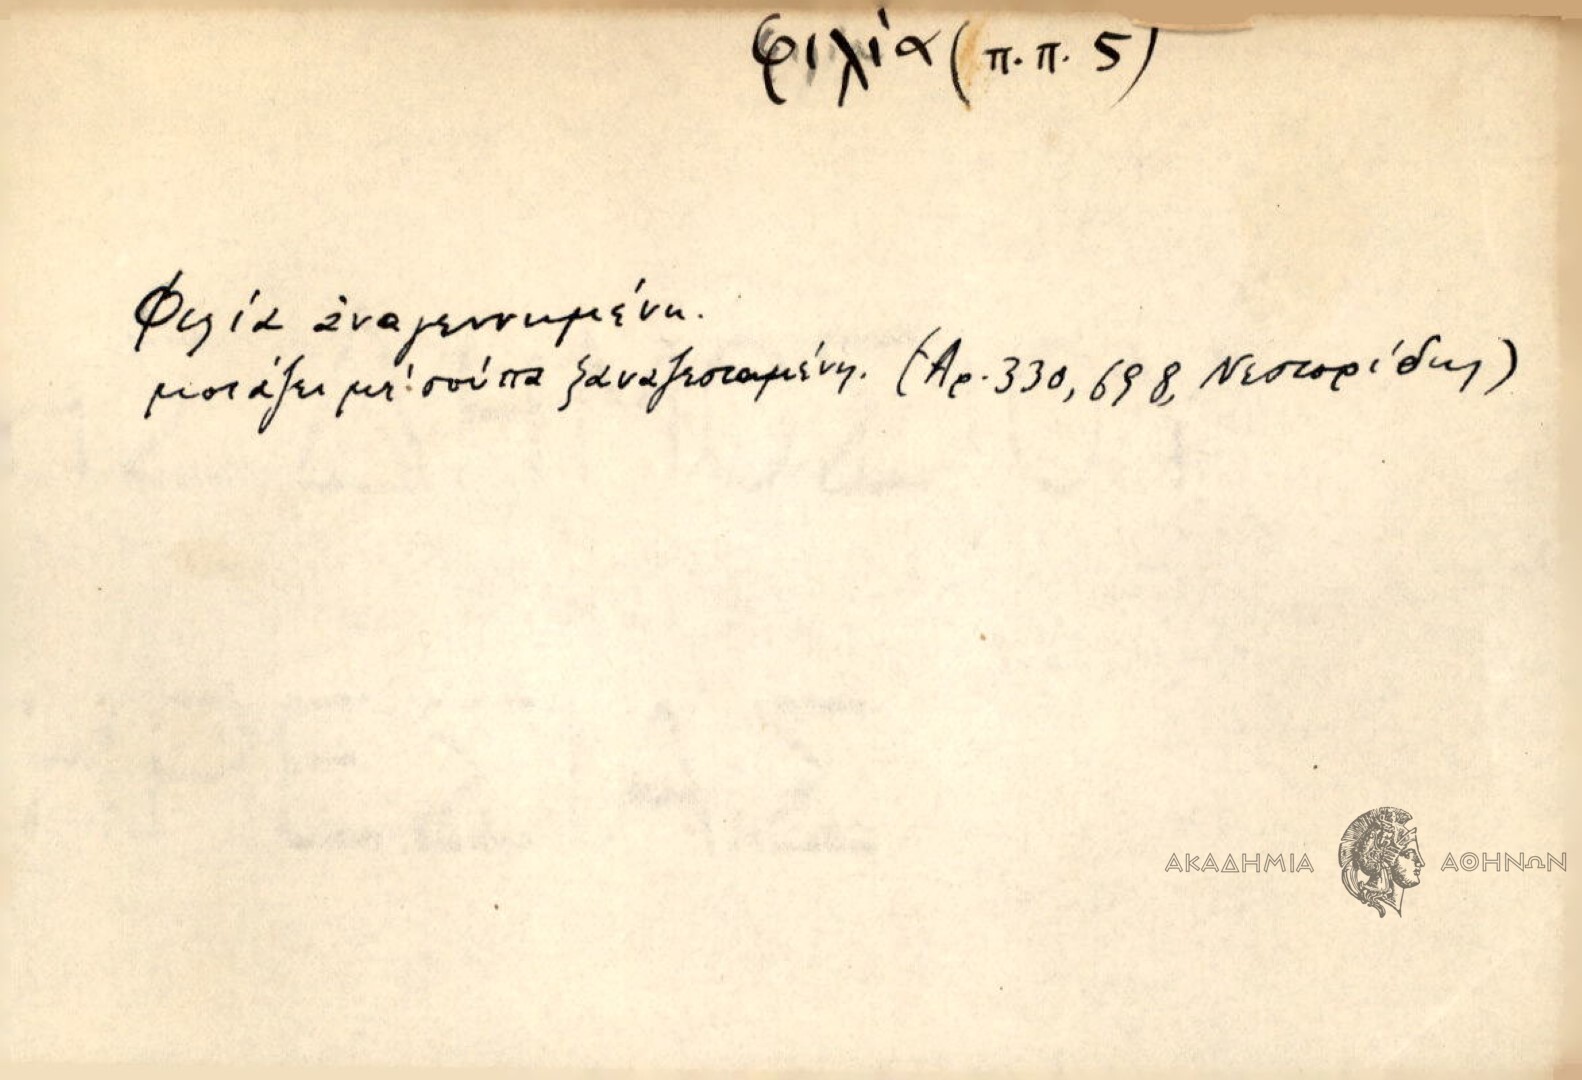 φιλία (π.π. 5)
Φιλία ἀναγεννημένη.
μοιάζει μέ σούπα ξαναζεσταμένη. (Ἀρ. 330, 698, Νεστορίδης)
ΑΚΑΔΗΜΙΑ ΑΘΗΝΩΝ